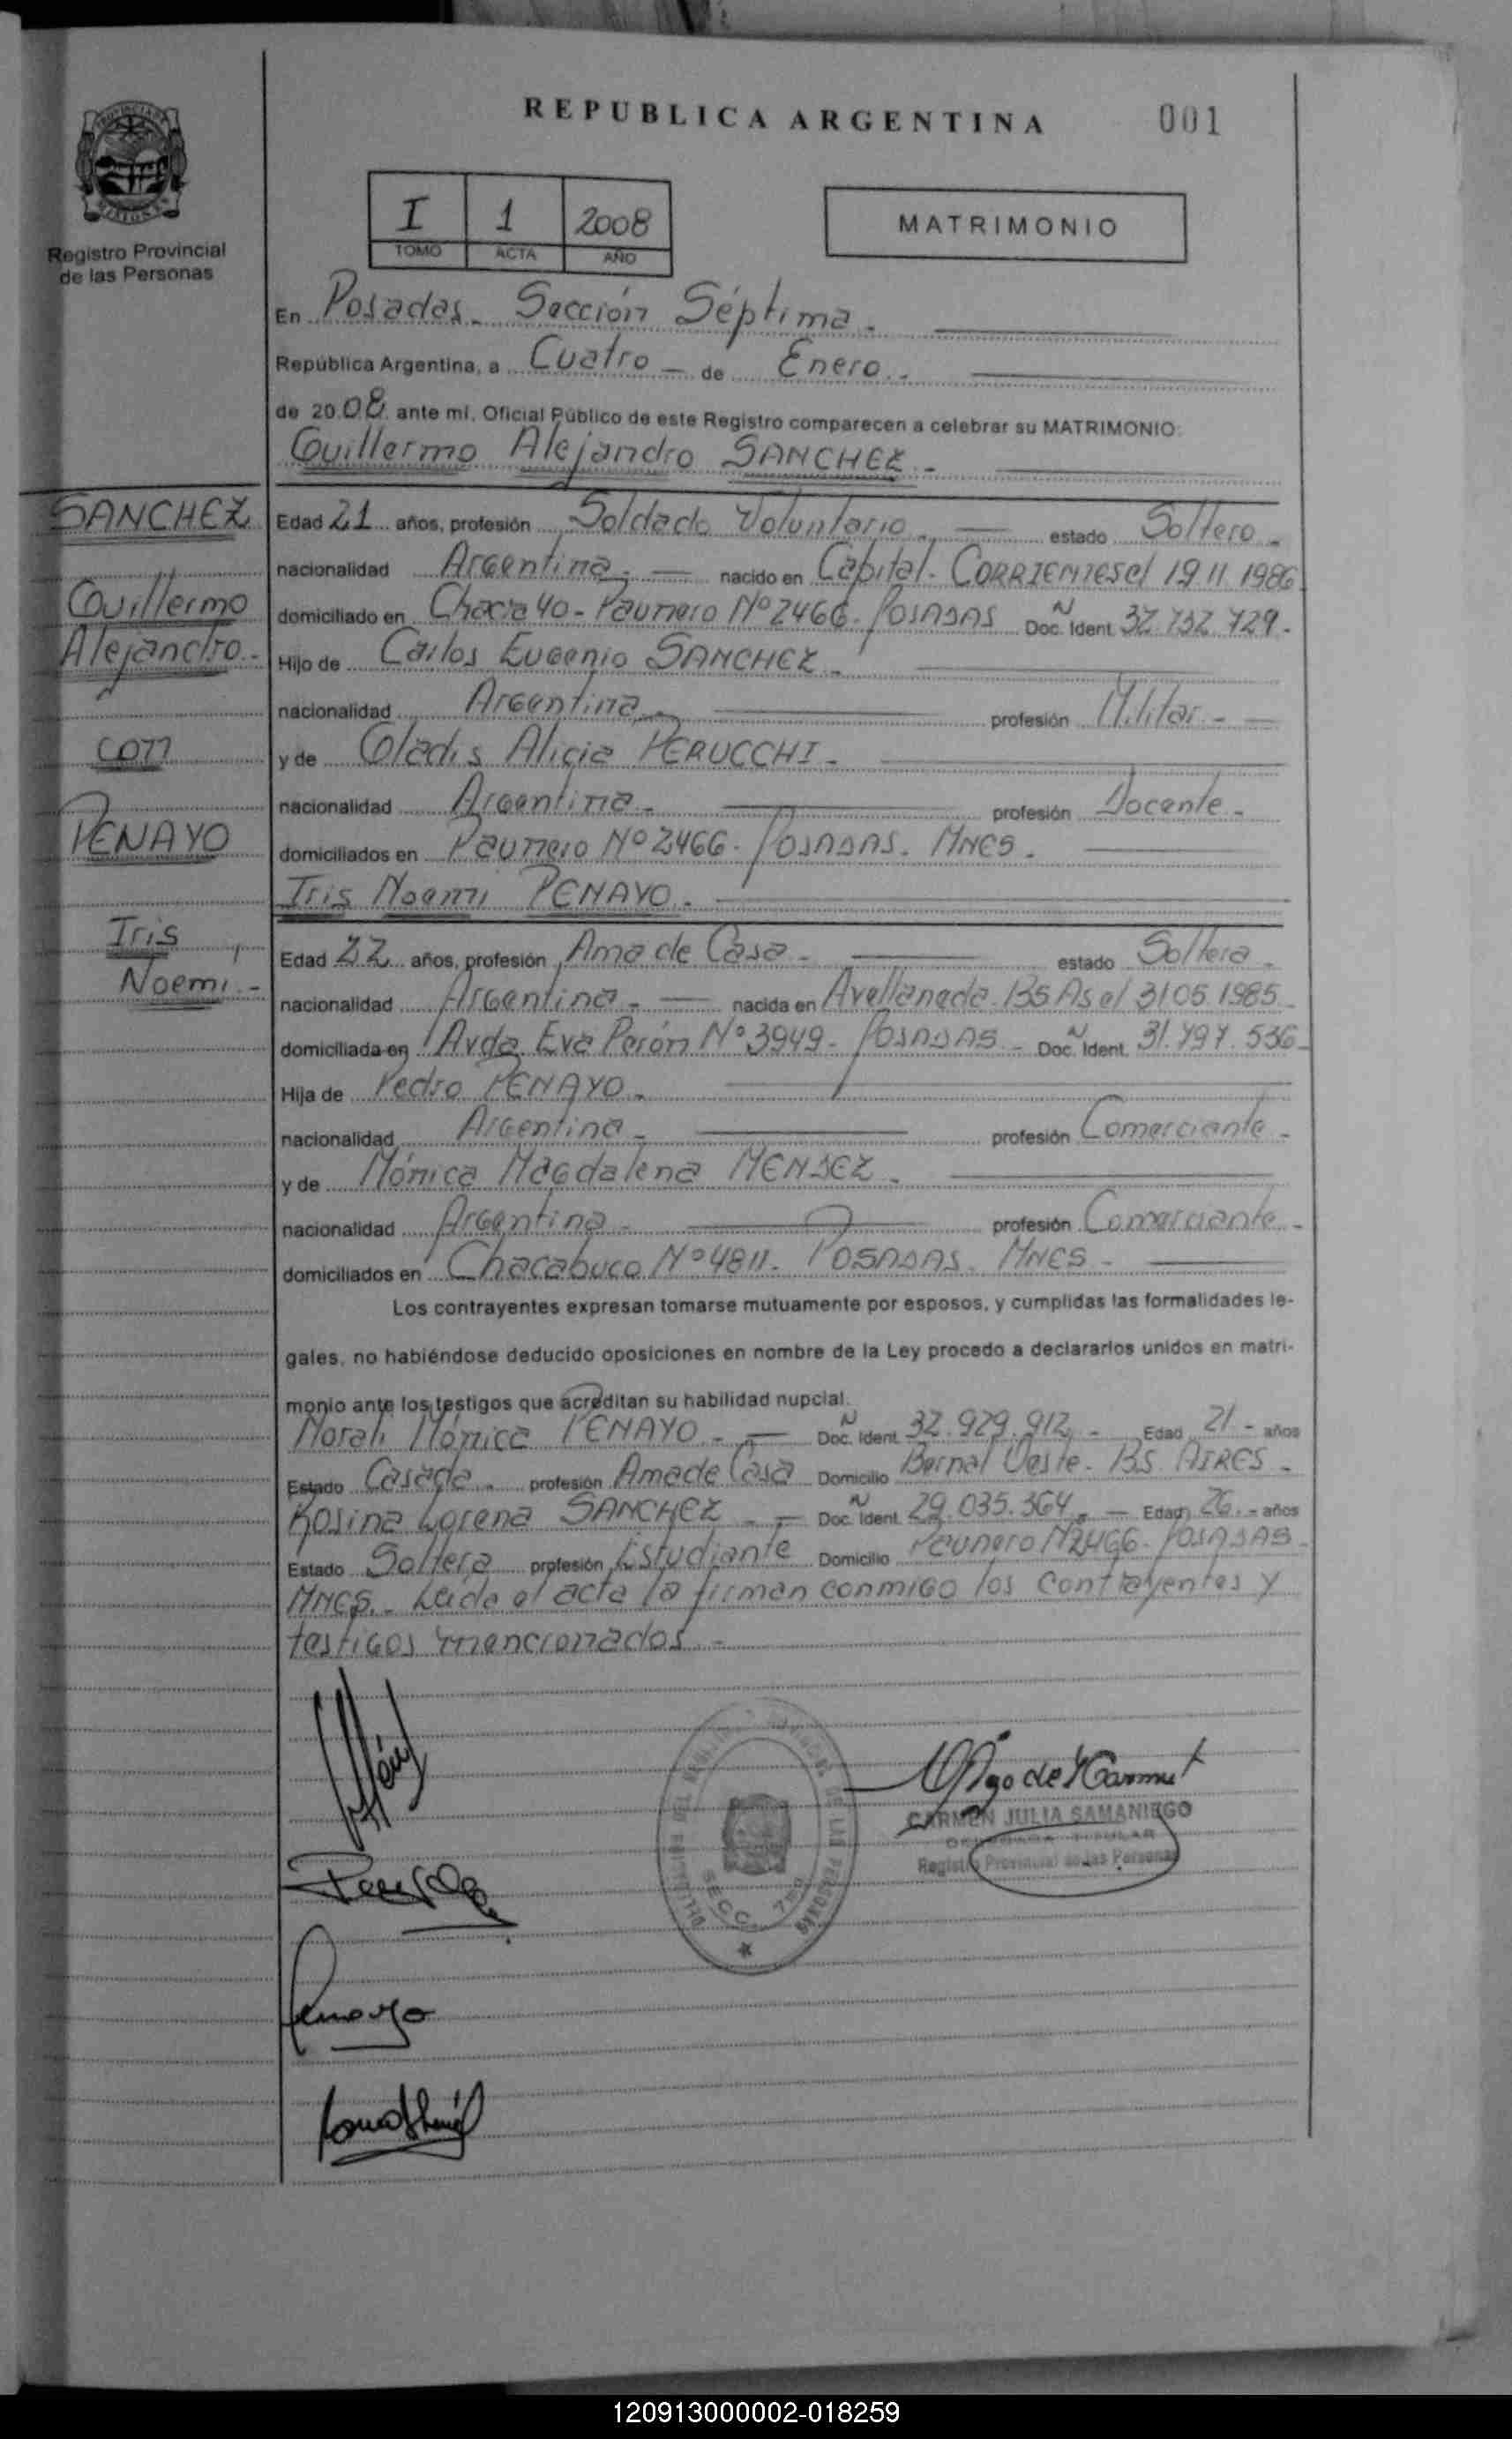 REPUBLICA ARGENTINA 001
Registro Provincial
de las Personas
I 1 2008
TOMO ACTA AÑO
MATRIMONIO
En Posadas. Sección Séptima.
República Argentina, a Cuatro - de Enero.
de 2008 ante mí, Oficial Público de este Registro comparecen a celebrar su MATRIMONIO:
Guillermo Alejandro SANCHEZ.-
SANCHEZ
Guillermo
Alejandro.-
con
PENAYO
Iris
Noemi.-
Edad 21 años, profesión Soldado Voluntario. estado Soltero.-
nacionalidad Argentina.- nacido en Capital. CORRIENTES el 19.11.1986
domiciliado en Chacra 40- Paunero Nº 2466. POSADAS Doc. Ident. 32.732.729.-
Hijo de Carlos Eugenio SANCHEZ.
nacionalidad Argentina. profesión Militar.-
y de Gladis Alicia PERUCCHI.-
nacionalidad Argentina.- profesión Docente.-
domiciliados en Paunero Nº 2466. POSADAS. MNES.
Iris Noemi PENAYO.
Edad 22 años, profesión Ama de Casa.- estado Soltera.-
nacionalidad Argentina.- nacida en Avellaneda. BS As el 31.05.1985
domiciliada en Avda. Eva Perón Nº 3949- POSADAS.- Doc. Ident. 31.797.536-
Hija de Pedro PENAYO.
nacionalidad Argentina.- profesión Comerciante.-
y de Mónica Magdalena MENDEZ.
nacionalidad Argentina.- profesión Comerciante.-
domiciliados en Chacabuco Nº 4811. POSADAS. MNES.-
Los contrayentes expresan tomarse mutuamente por esposos, y cumplidas las formalidades le-
gales, no habiéndose deducido oposiciones en nombre de la Ley procedo a declararlos unidos en matri-
monio ante los testigos que acreditan su habilidad nupcial.
Mónica PENAYO.- Doc. Ident. 32.929.912.- Edad 21.- años
Estado Casada. profesión Ama de Casa Domicilio Bernal Oeste. BS. AIRES.-
Rosina Lorena SANCHEZ.- Doc. Ident. 29.035.364.- Edad 26.- años
Estado Soltera profesión Estudiante Domicilio Paunero Nº 2466. POSADAS.
MNES.- Leida el acta la firman conmigo los contrayentes y
testigos mencionados.-
CARMEN JULIA SAMANIEGO
Registro Provincial de las Personas
SECC. 7ma
120913000002-018259